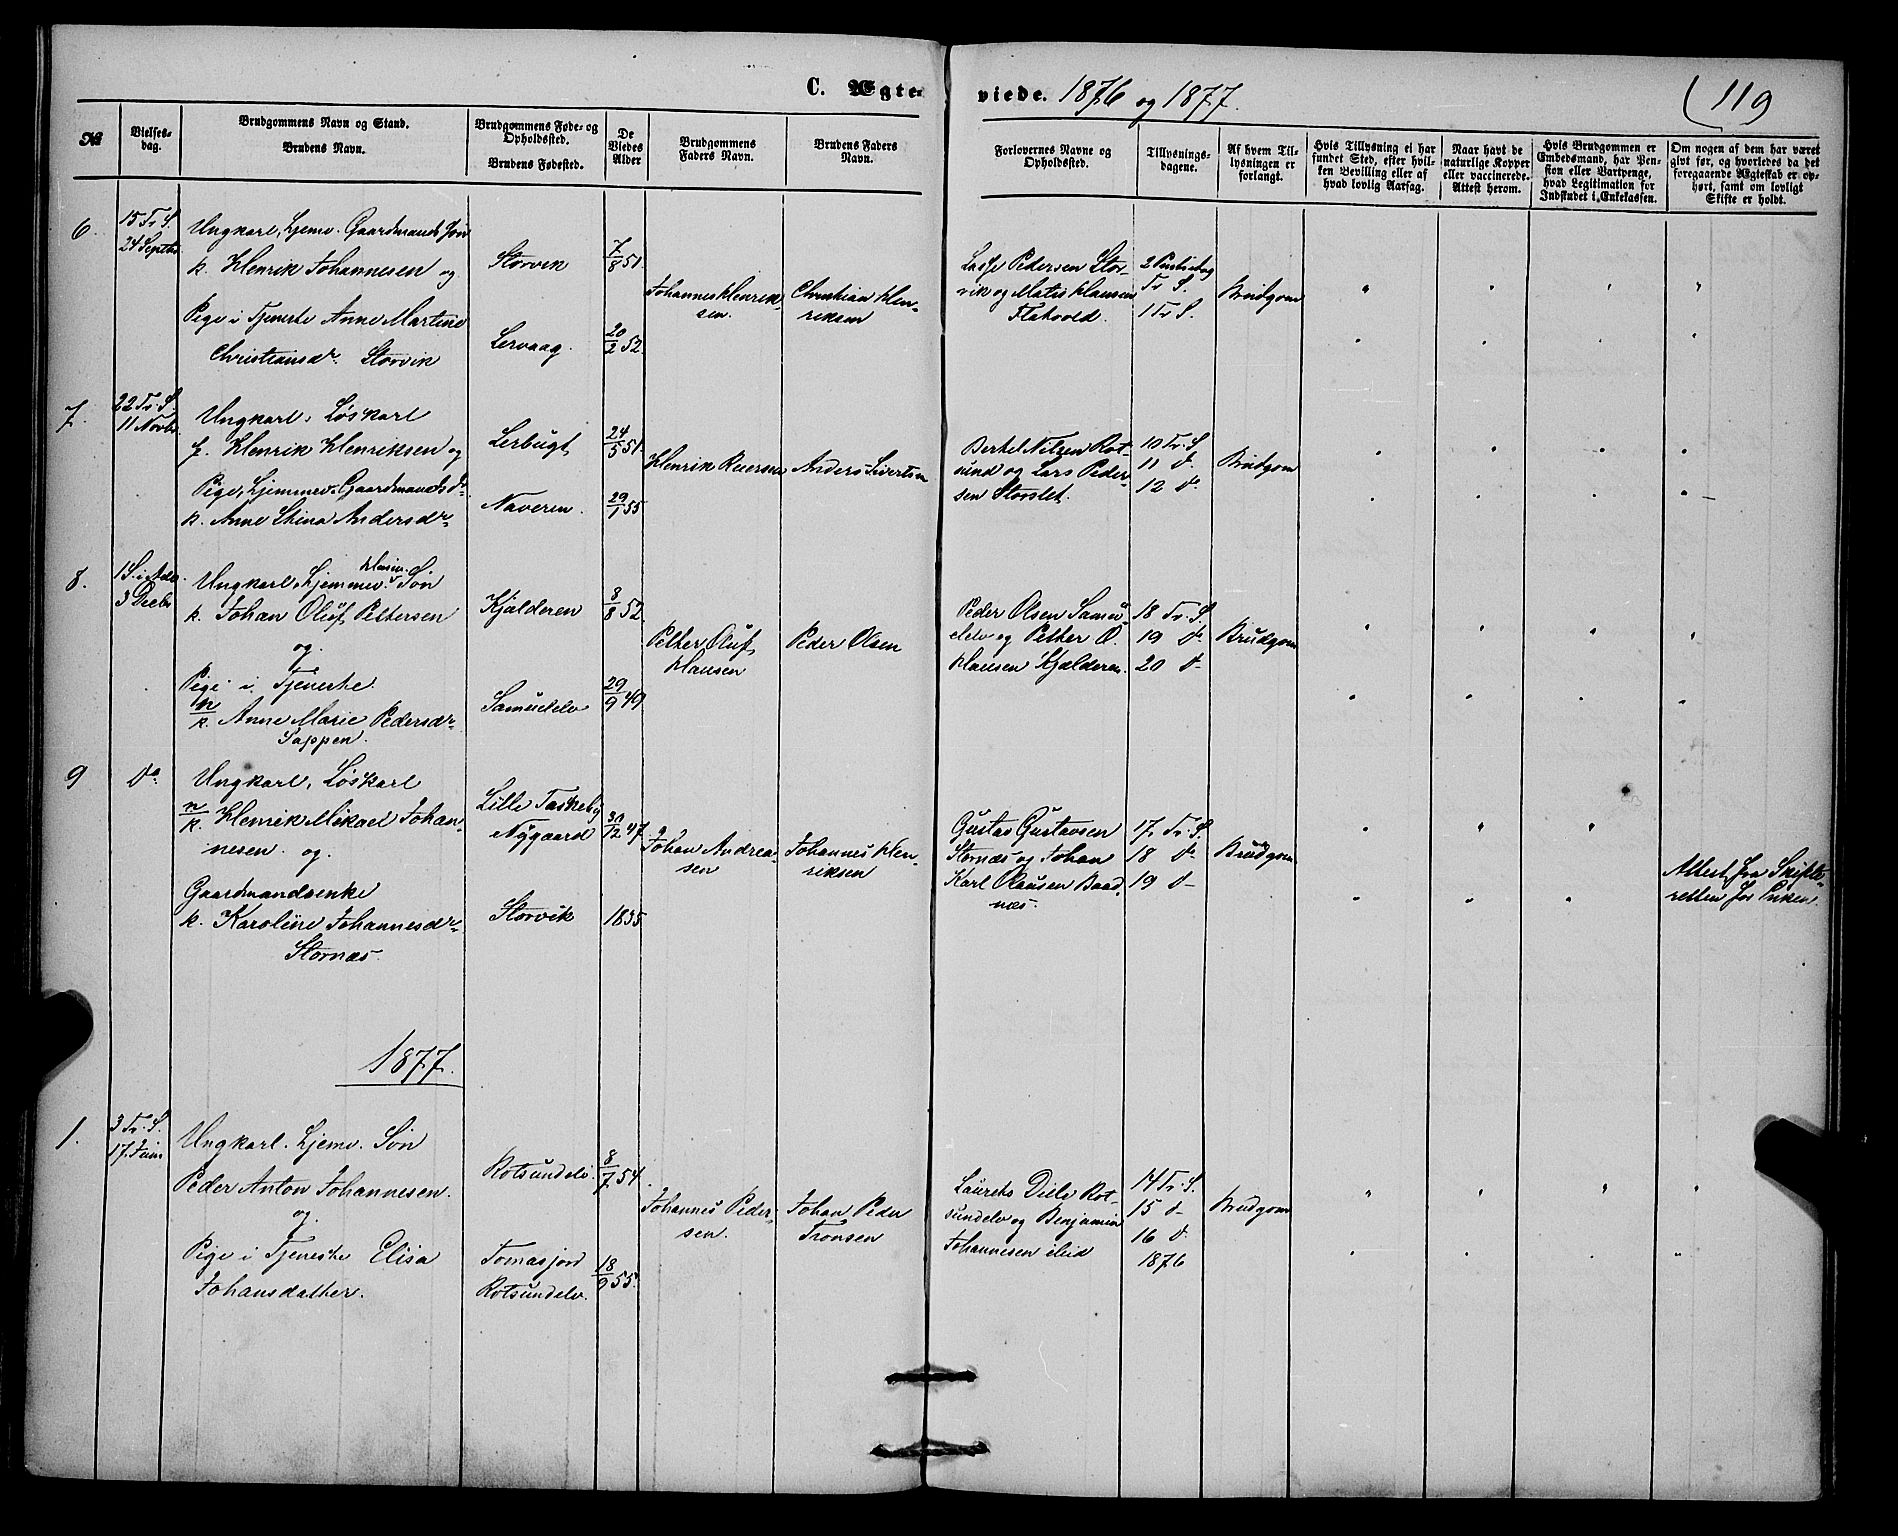 C. Ægteviede. 1876 og 1877.
119
№
Vielsesdag.
Brudgommens Navn og Stand.
Brudens Navn.
Brudgommens Føde- og Opholdssted.
Brudens Fødested.
De Viedes Alder
Brudgommens Faders Navn.
Brudens Faders Navn.
Forlovernes Navne og Opholdssted.
Tillysningsdagene.
Af hvem Tillysningen er forlangt.
Hvis Tillysning ei har fundet Sted, efter hvilken Bevilling eller af hvad lovlig Aarsag.
Naar havt de naturlige Kopper eller vaccinerede. Attest herom.
Hvis Brudgommen er Embedsmand, har Pension eller Vartpenge, hvad Legitimation for Indskudet i Enkekassen.
Om nogen af dem har været givt før, og hvorledes da det foregaaende Ægteskab er ophørt, samt om lovligt Skifte er holdt.
6.
15 Tr. S.
24 Septbr.
Ungkarl, hjemv. Gaardmands Søn
k. Henrik Johannesen og
Pige i Tjeneste Anne Martine
Christiansdr. Storvik
Storvik
Lervaag.
7/8 51.
20/2 52.
Johannes Henrik-
sen.
Christian Hen-
riksen
Lasse Pedersen Stor-
vik og Matis Hansen
Flatvold.
Tr S.
1 Tr S.
Brudgom
7.
22 Tr. S.
11 Novbr.
Ungkarl, Løskarl
k. Henrik Henriksen og
Pige, hjemmev. Gaardmands dr.
k. Anne Stina Andersdr.
Lerbugt
Naveren.
24/5 51.
29/1 55
Henrik Reiersen
Anders Sivertsen
Berthel Nilsen Rot-
sund og Lars Peder-
sen Storslet.
10 Tr. S.
11 d.
12 do
Brudgom
8.
1 S. i Adv.
3 Decbr
Ungkarl, hjemmev. Husm. Søn
k. Johan Oluf Pettersen
og
Pige i Tjeneste
n/k. Anne Marie Pedersdr.
Sappen.
Kjælderen
Samuelelv
8/8 52.
29/9 49
Petter Oluf
Hansen
Peder Olsen
Peder Olsen Samu-
elelv og Petter O.
Hansen Kjælderen.
18 Tr. S.
19 do
20 d-
Brudgom
9
do
Ungkarl, Løskarl
n/k. Henrik Mikael Johan-
nesen. og.
Gaardmandsenke
k. Karoline Johannesdr.
Stornæs.
Lille Taskeby
Nygaard
Storvik
30/12 47
1835
Johan Andrea-
sen
Johannes Hen-
riksen
Gustav Gustavsen
Stornæs og Johan
Karl Olausen Baad-
næs.
17 Tr. S.
18 do
19 d-
Brudgom
Attest fra Skifte-
retten for Enken.
1877.
1.
3 Tr. S.
17 Juni
Ungkarl. hjemv. Søn
Peder Anton Johannesen.
og
Pige i Tjeneste Elisa
Johansdatter.
Rotsundelv.
Tomasjord
Rotsundelv.
8/7 54.
18/9 55.
Johannes Peder-
sen.
Johan Peder
Tronsen
Laurits Rot-
sundelv og Benjamin
Johannesen ibid
14 Tr. S.
15 d-
16 d.
1876
Brudgom